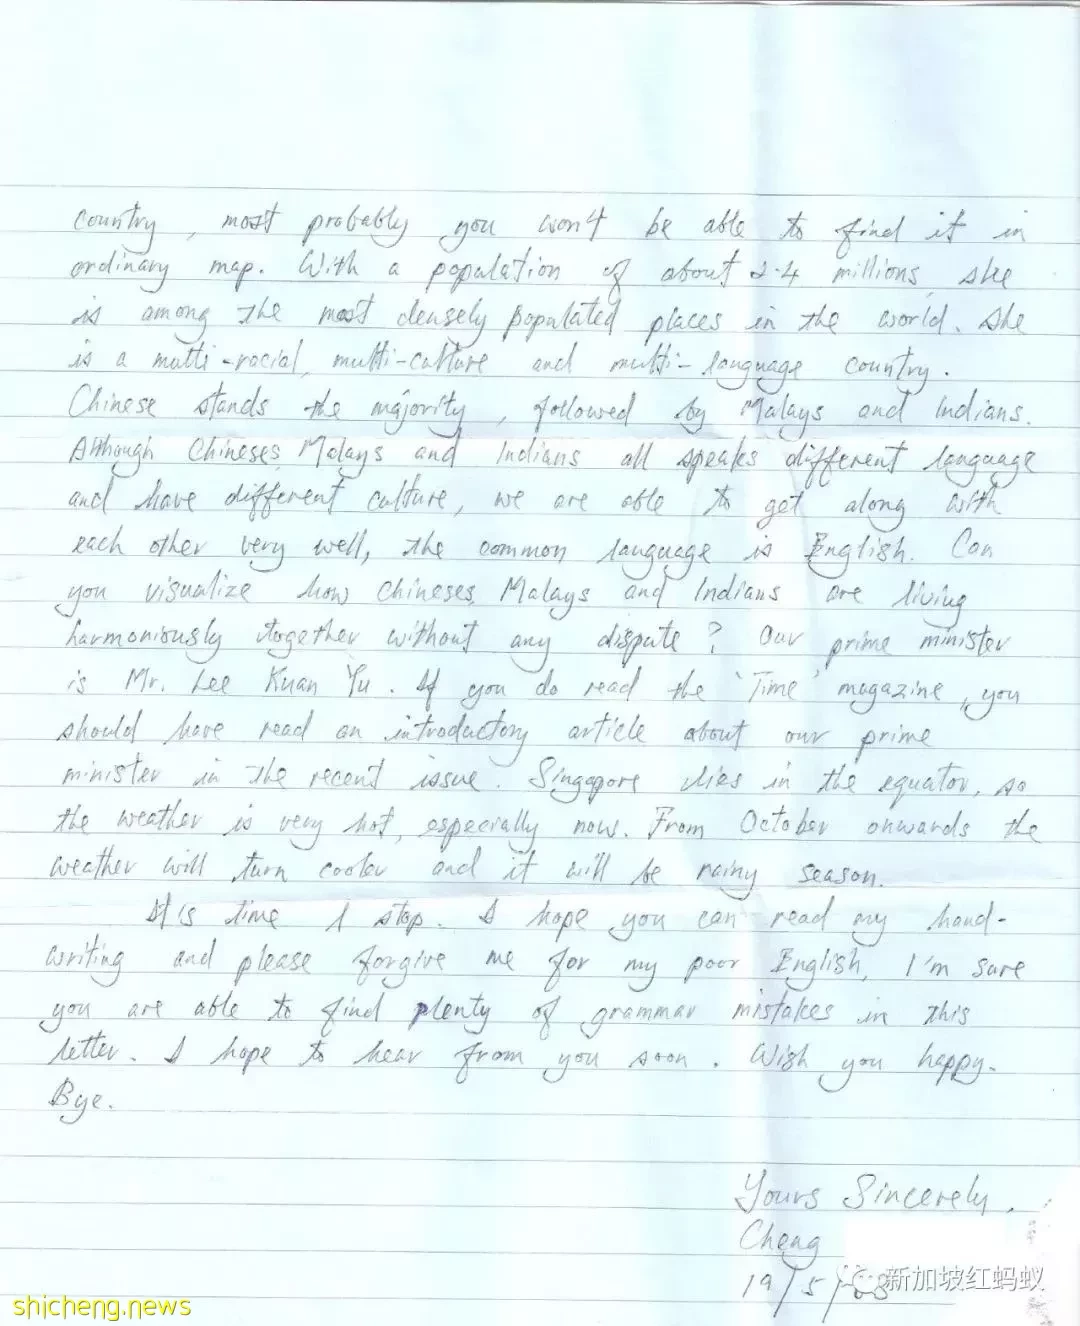 country, most probably you won't be able to find it in
ordinary map. With a population of about 2.4 millions, she
is among the most densely populated places in the world. She
is a multi-racial, multi-culture and multi-language country.
Chinese stands the majority, followed by Malays and Indians.
Although Chineses, Malays and Indians all speaks different language
and have different culture, we are able to get along with
each other very well, the common language is English. Can
you visualize how Chineses, Malays and Indians are living
harmoniously together without any dispute? Our prime minister
is Mr. Lee Kuan Yu. If you do read the 'Time' magazine, you
should have read an introductory article about our prime
minister in the recent issue. Singapore lies in the equator, so
the weather is very hot, especially now. From October onwards the
weather will turn cooler and it will be rainy season.
It is time I stop. I hope you can read my hand-
writing and please forgive me for my poor English, I'm sure
you are able to find plenty of grammar mistakes in this
letter. I hope to hear from you soon. Wish you happy.
Bye.
Yours Sincerely,
Cheng
19/5/
新加坡红蚂蚁
shicheng.news